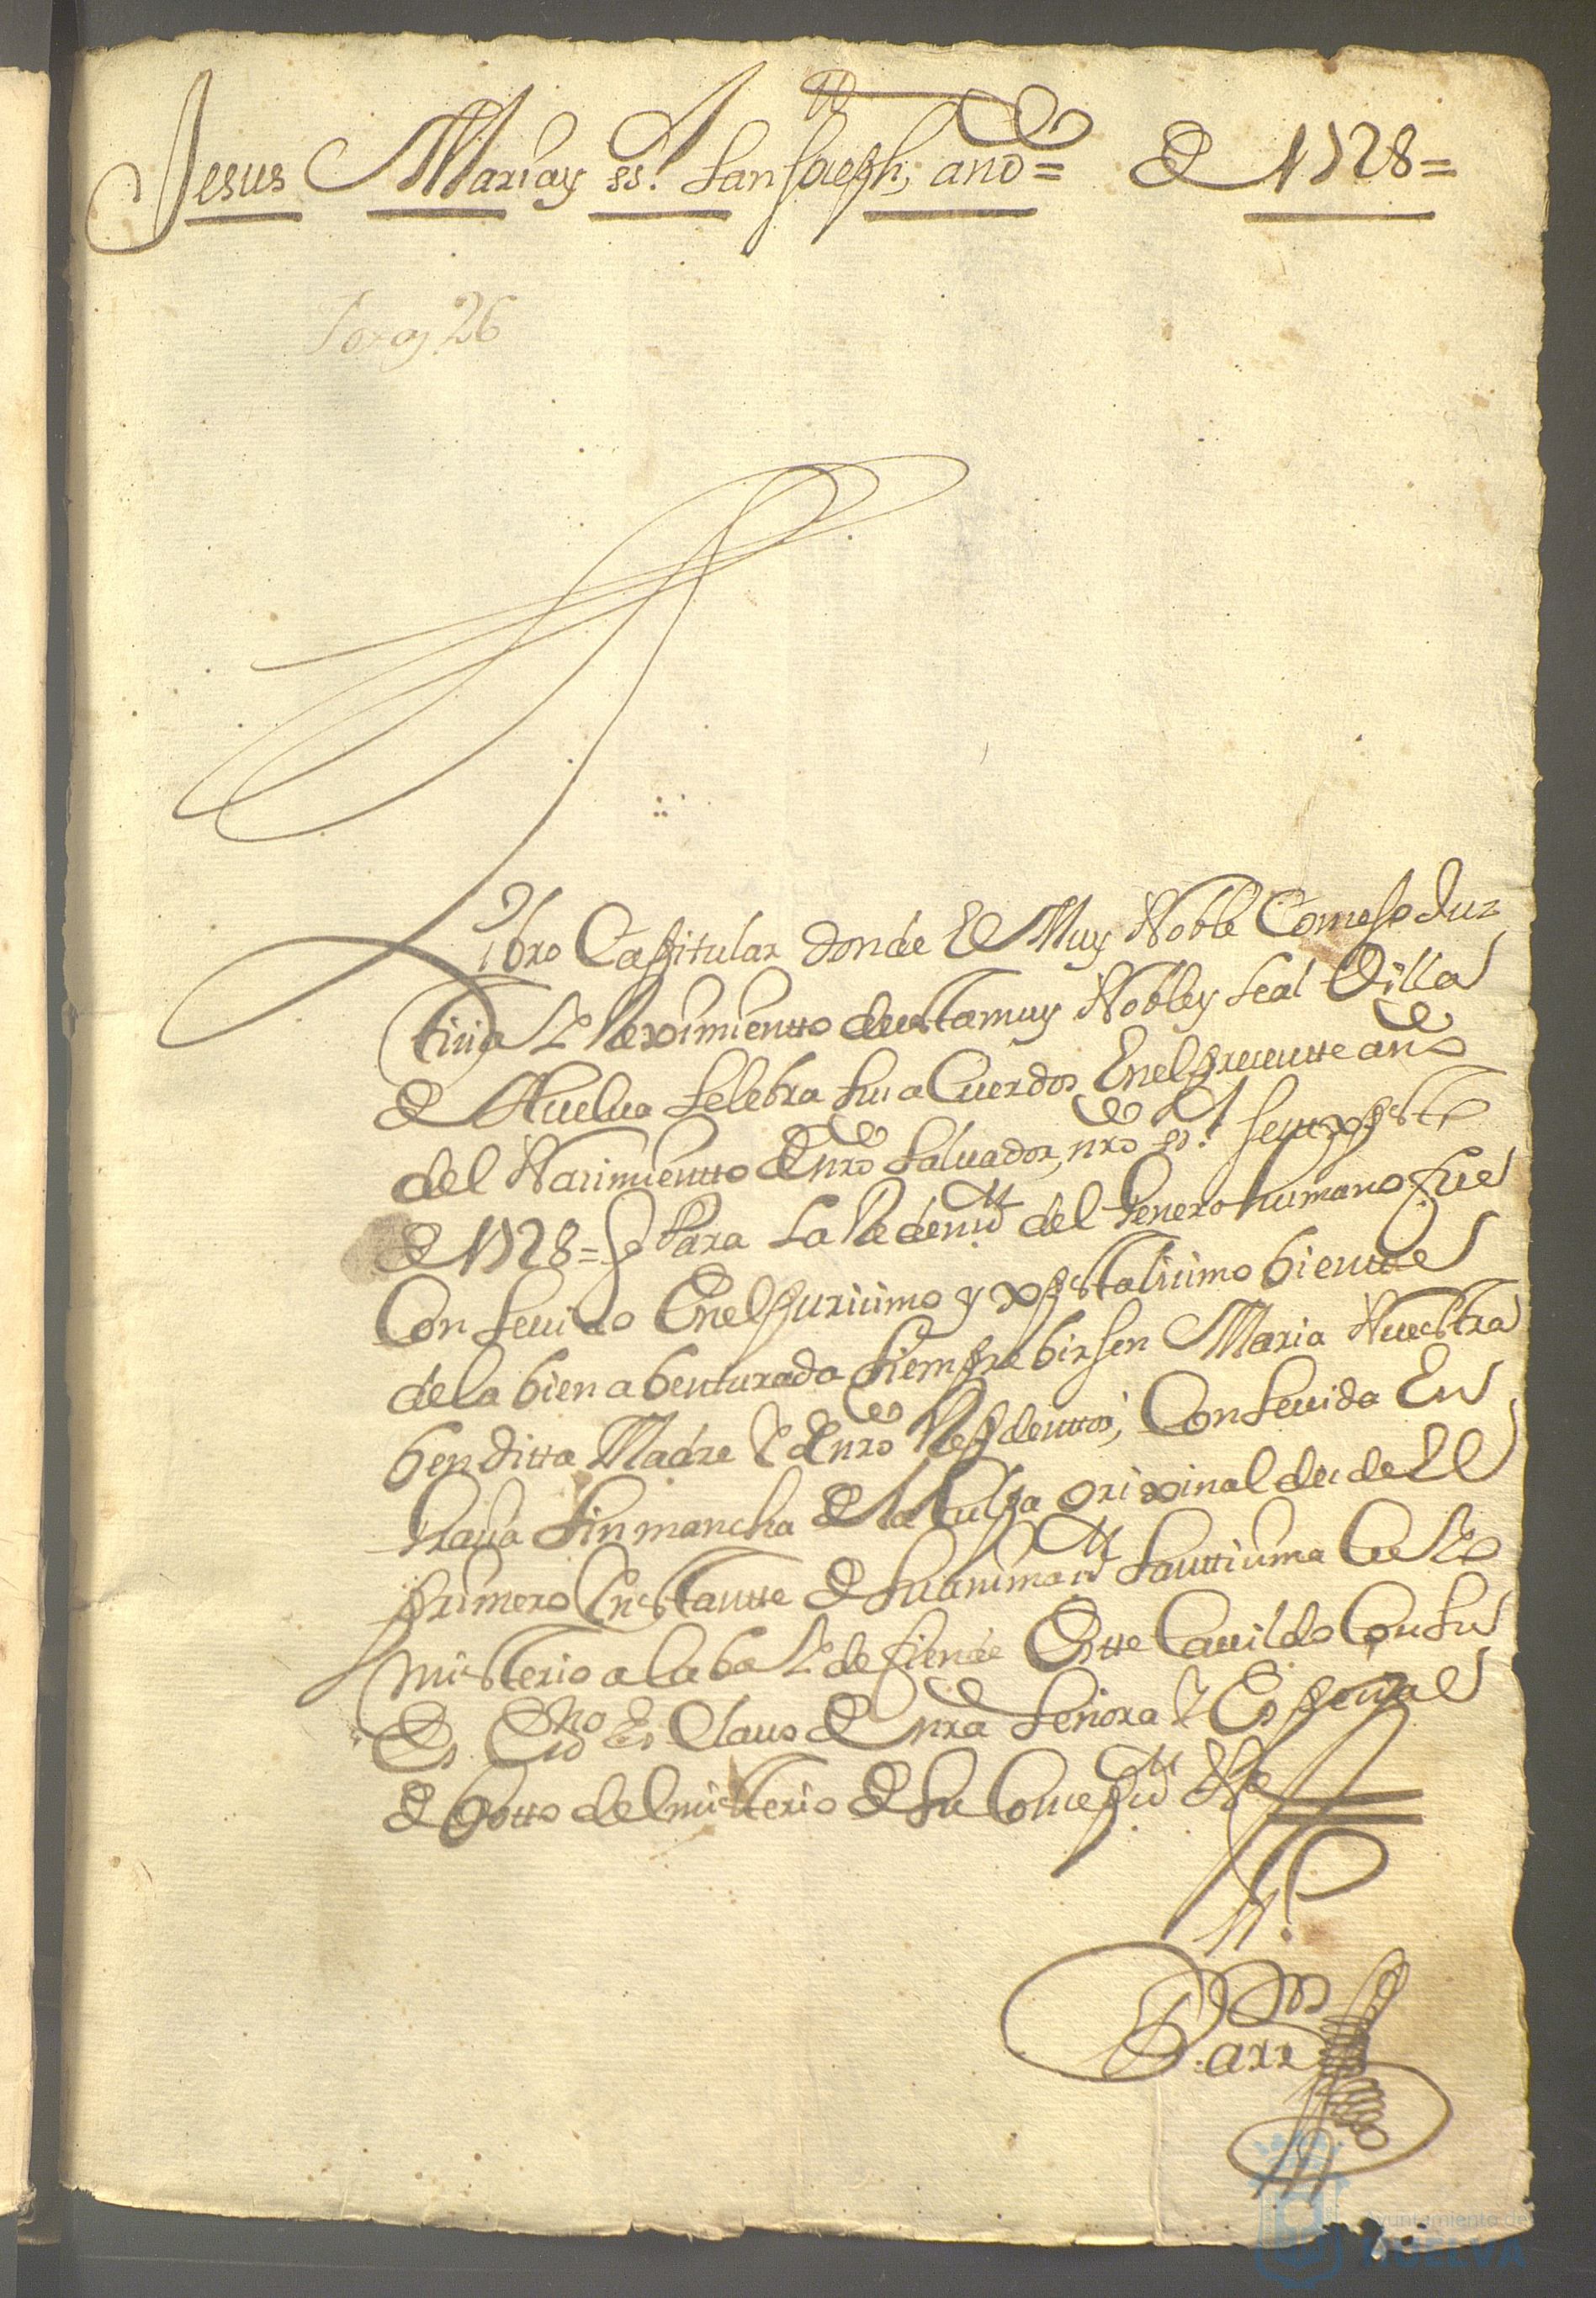 Jesus Maria y ss.r San Joseph; año = de 1728 =
Foxas 26
Libro Capitular donde El Muy Noble Consejo Jus
ticia Y Reximientto de esta muy Noble y Leal Villa
de Huelua Selebra sus aCuerdos En el presentte año
del Nacimientto de nro Saluador, nro ss.r Jesuxpsto
de 1728 = Para La Redenon del Jenero humano fue
Conseuido En el purisimo y xpstalisimo bientre
de la bien abenturada siempre birjen Maria Nuestra
benditta Madre Y de nro Redentor, Conseuida En
Grasia Sin mancha de la Culpa orixinal desde El
primero Instantte de su animaon Santtisima Cuyo
misterio alaba Y defiende Estte Cauildo Con su
Es.no EsClauo de nra Señora Y Espesial
deBotto del misterio de su Consepon